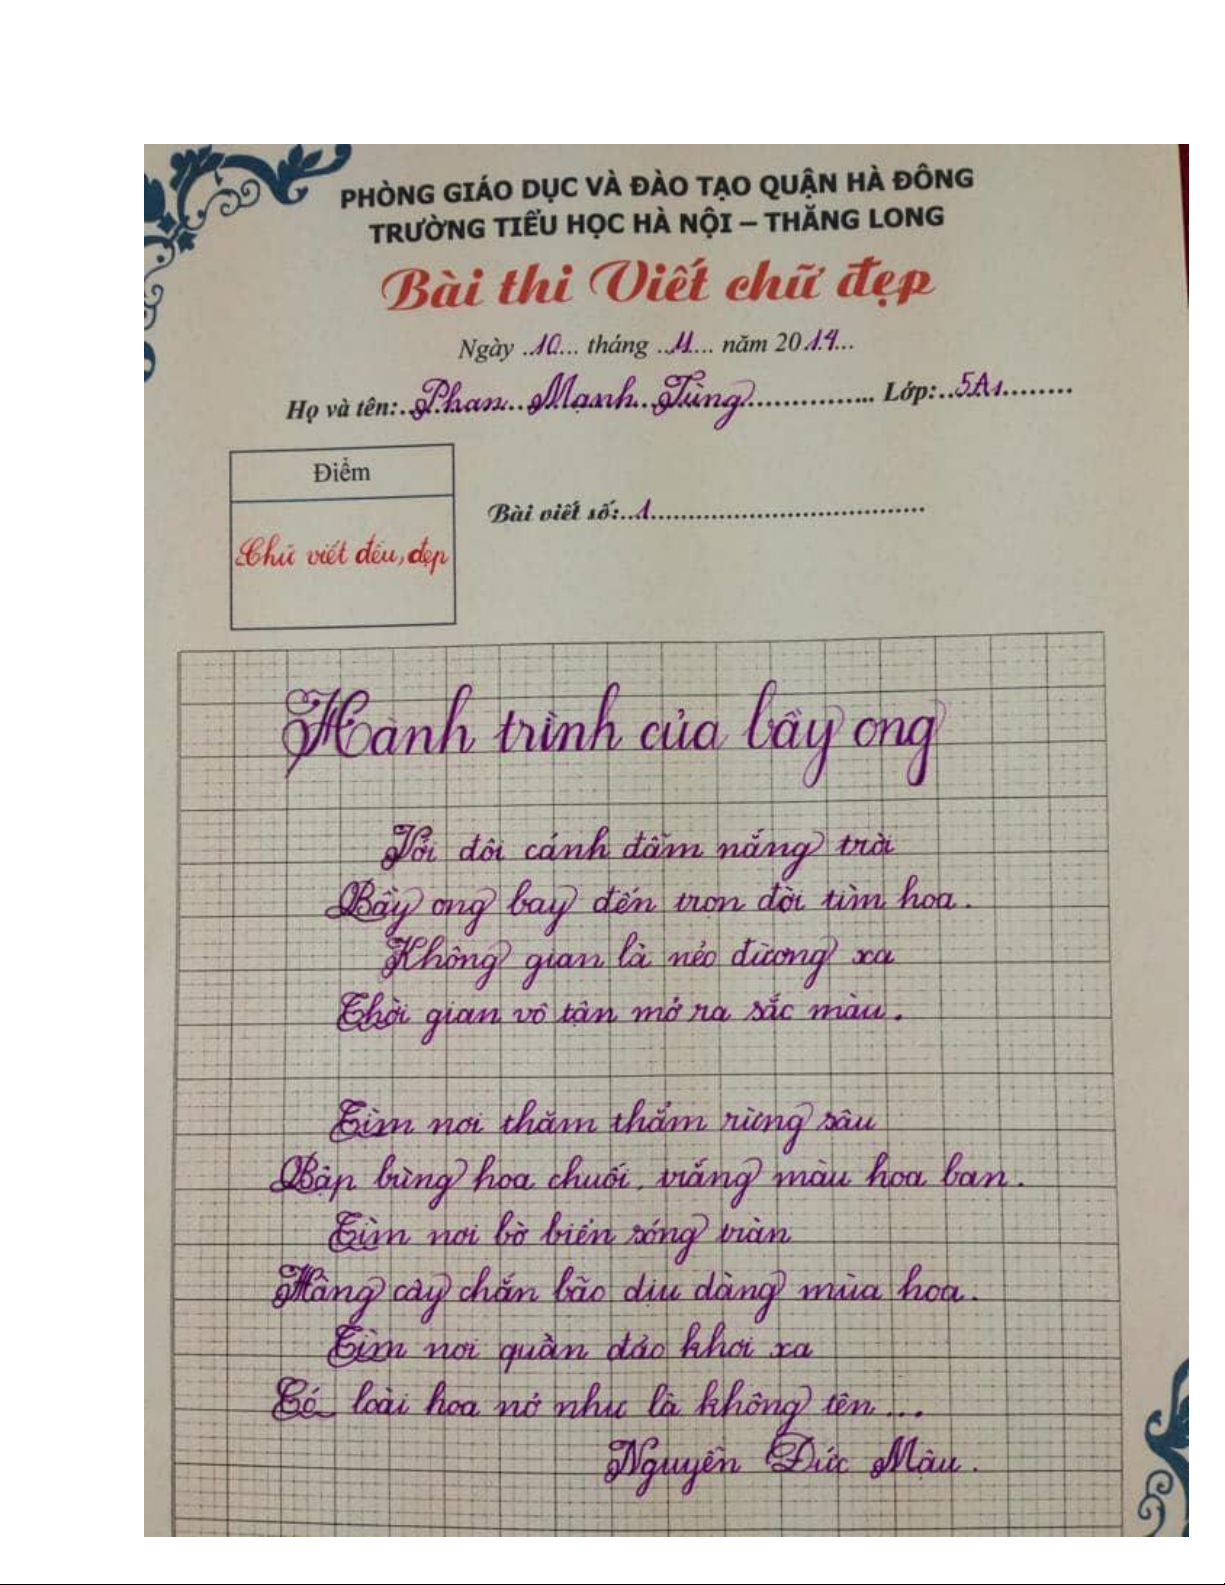 PHÒNG GIÁO DỤC VÀ ĐÀO TẠO QUẬN HÀ ĐÔNG
TRƯỜNG TIỂU HỌC HÀ NỘI – THĂNG LONG
Bài thi Viết chữ đẹp
Ngày ..10... tháng ..11... năm 2019...
Họ và tên:..Phan Mạnh Tùng................ Lớp:..5A1........
Điểm
Bài viết số:..1..................................
Chữ viết đều, đẹp
Hành trình của bầy ong
Với đôi cánh đẫm nắng trời
Bầy ong bay đến trọn đời tìm hoa.
Không gian là nẻo đường xa
Thời gian vô tận mở ra sắc màu.
Tìm nơi thăm thẳm rừng sâu
Bập bùng hoa chuối, trắng màu hoa ban.
Tìm nơi bờ biển sóng tràn
Hàng cây chắn bão dịu dàng mùa hoa.
Tìm nơi quần đảo khơi xa
Có loài hoa nở như là không tên...
Nguyễn Đức Mậu.